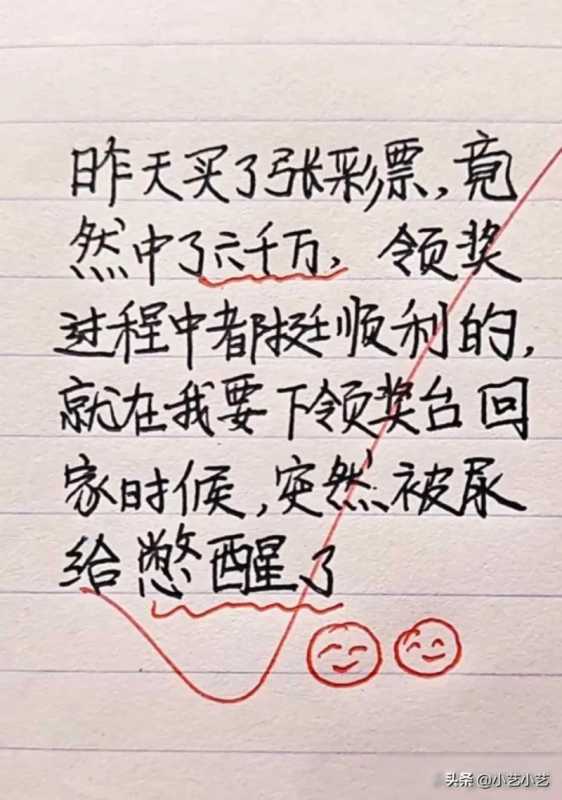 昨天买了张彩票,竟
然中了六千万,领奖
过程中都挺顺利的,
就在我要下领奖台回
家时候,突然被尿
给憋醒了
头条 @小艺小艺